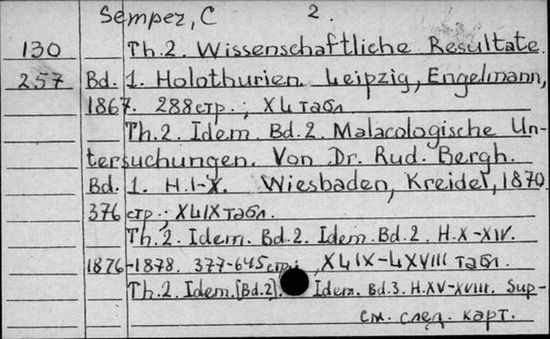 Semper, C 2.
130 Th. 2. Wissenschaftliche Resultate.
257 Bd. 1. Holothurien. Leipzig, Engelmann,
1867. 288 стр.; XL табл
Th. 2. Idem. Bd. 2. Malacologische Un-
tersuchungen. Von Dr. Rud. Bergh.
Bd. 1. H. I-X. Wiesbaden, Kreidel, 1870
376 стр.; XLIX табл.
Th. 2. Idem. Bd. 2. Idem. Bd. 2. H. X-XIV.
1876-1878. 377-645 стр.; XLIX-LXVIII табл.
Th. 2. Idem. [Bd. 2]. Idem. Bd. 3. H. XV-XVIII. Sup-
см. след. карт.